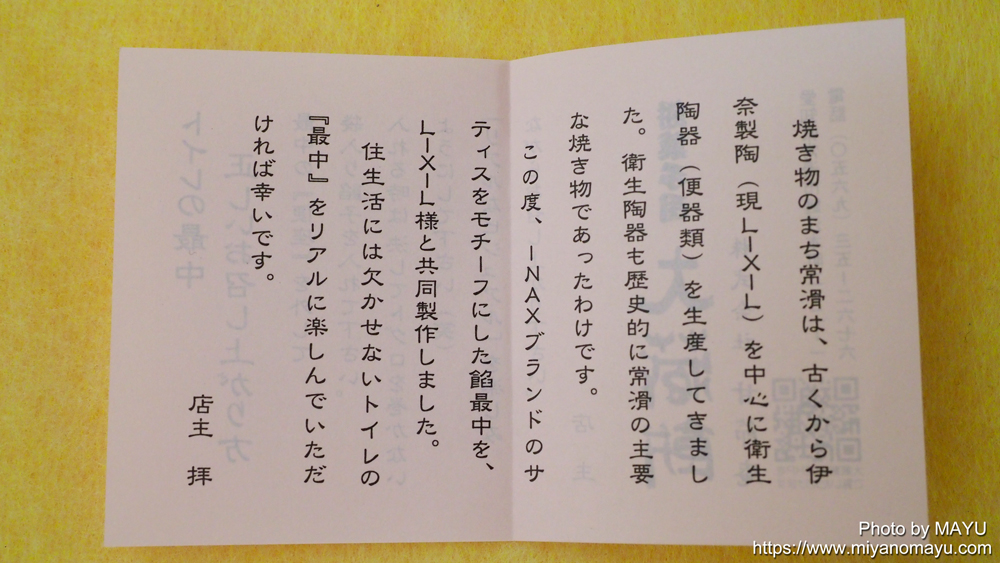 焼き物のまち常滑は、古くから伊
奈製陶（現LIXIL）を中心に衛生
陶器（便器類）を生産してきまし
た。衛生陶器も歴史的に常滑の主要
な焼き物であったわけです。
この度、INAXブランドのサ
ティスをモチーフにした餡最中を、
LIXIL様と共同製作しました。
住生活には欠かせないトイレの
『最中』をリアルに楽しんでいただ
ければ幸いです。
店主　拝
トイレの最中
正しいお召し上がり方
Photo by MAYU
https://www.miyanomayu.com